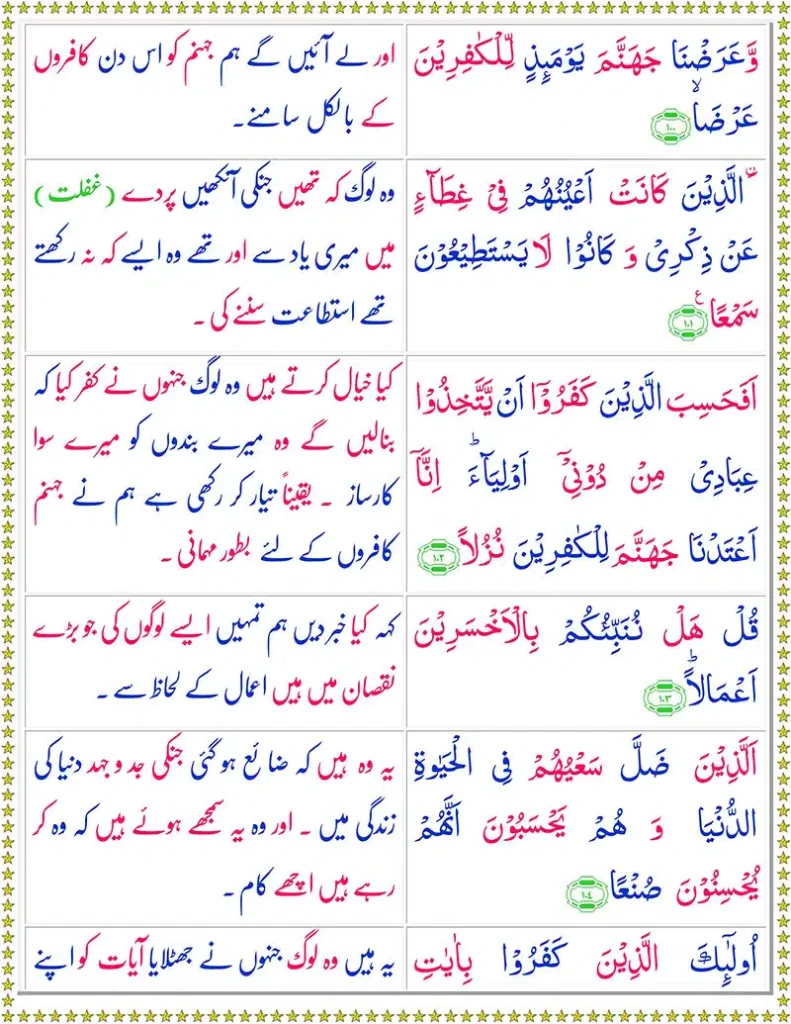 وَّعَرَضْنَا جَهَنَّمَ يَوْمَئِذٍ لِّلْكٰفِرِيْنَ
عَرْضَاۙ ۝١٠٠
اور لے آئیں گے ہم جہنم کو اس دن کافروں
کے بالکل سامنے۔
اۨلَّذِيْنَ كَانَتْ اَعْيُنُهُمْ فِىْ غِطَآءٍ
عَنْ ذِكْرِىْ وَ كَانُوْا لَا يَسْتَطِيْعُوْنَ
سَمْعًا ۧ ۝١٠١
وہ لوگ کہ تھیں جنکی آنکھیں پردے (غفلت)
میں میری یاد سے اور تھے وہ ایسے کہ نہ رکھتے
تھے استطاعت سننے کی ۔
اَفَحَسِبَ الَّذِيْنَ كَفَرُوْۤا اَنْ يَّتَّخِذُوْا
عِبَادِىْ مِنْ دُوْنِىْۤ اَوْلِيَآءَ ؕ اِنَّاۤ
اَعْتَدْنَا جَهَنَّمَ لِلْكٰفِرِيْنَ نُزُلاً ۝١٠٢
کیا خیال کرتے ہیں وہ لوگ جنہوں نے کفر کیا کہ
بنالیں گے وہ میرے بندوں کو میرے سوا
کارساز ۔ یقیناً تیار کر رکھی ہے ہم نے جہنم
کافروں کے لئے بطور مہمانی ۔
قُلْ هَلْ نُنَبِّئُكُمْ بِالْاَخْسَرِيْنَ
اَعْمَالاًؕ ۝١٠٣
کہہ کیا خبر دیں ہم تمہیں ایسے لوگوں کی جو بڑے
نقصان میں ہیں اعمال کے لحاظ سے ۔
اَلَّذِيْنَ ضَلَّ سَعْيُهُمْ فِى الْحَيٰوةِ
الدُّنْيَا وَ هُمْ يَحْسَبُوْنَ اَنَّهُمْ
يُحْسِنُوْنَ صُنْعًا ۝١٠٤
یہ وہ ہیں کہ ضائع ہوگئی جنکی جد و جہد دنیا کی
زندگی میں ۔ اور وہ یہ سمجھے ہوئے ہیں کہ وہ کر
رہے ہیں اچھے کام ۔
اُولٰٓئِكَ الَّذِيْنَ كَفَرُوْا بِاٰيٰتِ
یہ ہیں وہ لوگ جنہوں نے جھٹلایا آیات کو اپنے